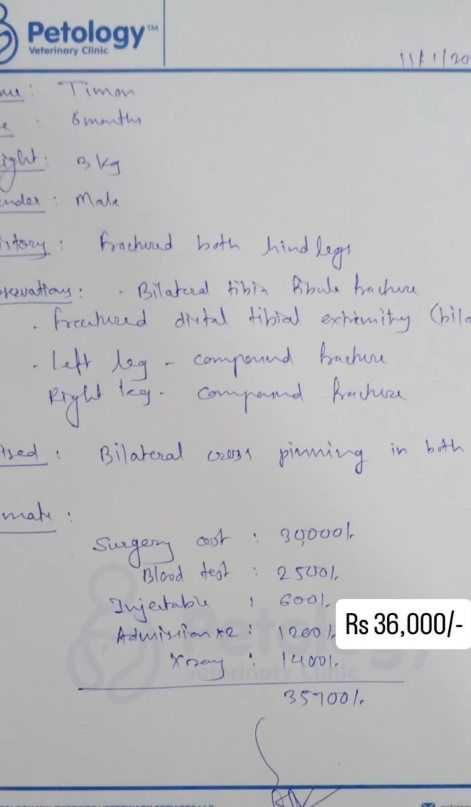 Petology™
Veterinary Clinic
11/1/20
me: Timon
e : 6 months
ight: 3 kg
nder: Male
istory: Fractured both hind legs
servations: - Bilateral tibia fibula fracture
. fractured distal tibial extremity (bila
. Left leg - compound fracture
Right leg - compound fracture
ised: Bilateral cross pinning in both
mate:
Surgery cost : 30,000/-
Blood test : 2500/-
Injectable : 600/-
Admission x2 : 1200/-
Rs 36,000/-
Xray : 1400/-
35700/-